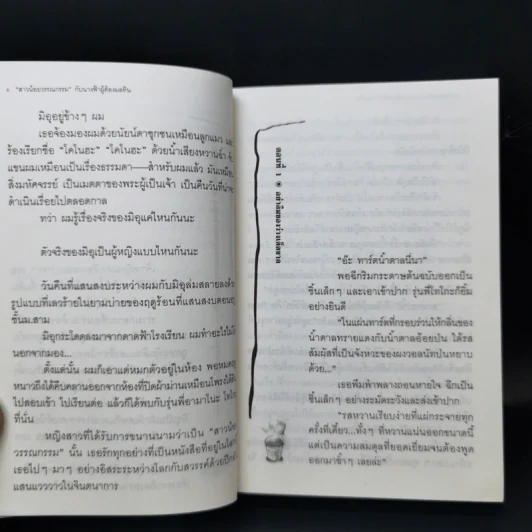 ๖ "สาวน้อยวรรณกรรม" กับนางฟ้าผู้ต้องมลทิน
มิอุอยู่ข้างๆ ผม
เธอจ้องมองผมด้วยนัยน์ตาซุกซนเหมือนลูกแมว
ร้องเรียกชื่อ "โคโนฮะ" "โคโนฮะ" ด้วยน้ำเสียงหวานฉ่ำ
แขนผมเหมือนเป็นเรื่องธรรมดา—สำหรับผมแล้ว มันเหมือน
สิ่งมหัศจรรย์ เป็นเมตตาของพระผู้เป็นเจ้า เป็นคืนวันที่น่าจะ
ดำเนินเรื่อยไปตลอดกาล
ทว่า ผมรู้เรื่องจริงของมิอุแค่ไหนกันนะ
ตัวจริงของมิอุเป็นผู้หญิงแบบไหนกันนะ
วันคืนที่แสนสงบระหว่างผมกับมิอุล่มสลายลงด้วย
รูปแบบที่เลวร้ายในยามบ่ายของฤดูร้อนที่แสนสงบตอน
ชั้นม.สาม
มิอุกระโดดลงมาจากดาดฟ้าโรงเรียน ผมทำอะไรไม่ได้
นอกจากมอง...
ตั้งแต่นั้น ผมก็เอาแต่หมกตัวอยู่ในห้อง พอหมด
หนาวถึงได้คืบคลานออกจากห้องที่ปิดผ้าม่านเหมือนโพรงใต้
ไปสอบเข้า ไปเรียนต่อ แล้วก็ได้พบกับรุ่นพี่อามาโนะ โทโก
ที่นั่น
หญิงสาวที่ได้รับการขนานนามว่าเป็น "สาวน้อย
วรรณกรรม" นั้น เธอรักทุกอย่างที่เป็นหนังสือที่อยู่ใน
เธอไปๆ มาๆ อย่างอิสระระหว่างโลกกับสวรรค์ด้วยปีก
แสนแวววาวในจินตนาการ
ตอนที่ 1
"อ๊ะ ทาร์ตน้ำตาลนี่นา"
พอฉีกริมกระดาษต้นฉบับออกเป็น
ชิ้นเล็กๆ และเอาเข้าปาก รุ่นพี่โทโกะก็ยิ้ม
อย่างยินดี
"ในแผ่นทาร์ตที่กรอบร่วนให้กลิ่นของ
น้ำตาลทรายแดงกับน้ำตาลอ้อยปน ได้รส
สัมผัสที่เป็นจังหวะของผงวอลนัทป่นหยาบ
ด้วย..."
เธอพึมพำพลางถอนหายใจ ฉีกเป็น
ชิ้นเล็กๆ อย่างระมัดระวังและส่งเข้าปาก
"รสหวานเรียบง่ายที่แผ่กระจายทุก
ครั้งที่เคี้ยว...ทั้งๆ ที่หวานแน่นออกขนาดนี้
แต่เป็นความสมดุลที่ยอดเยี่ยมจนต้องพูด
ออกมาซ้ำๆ เลยล่ะ"